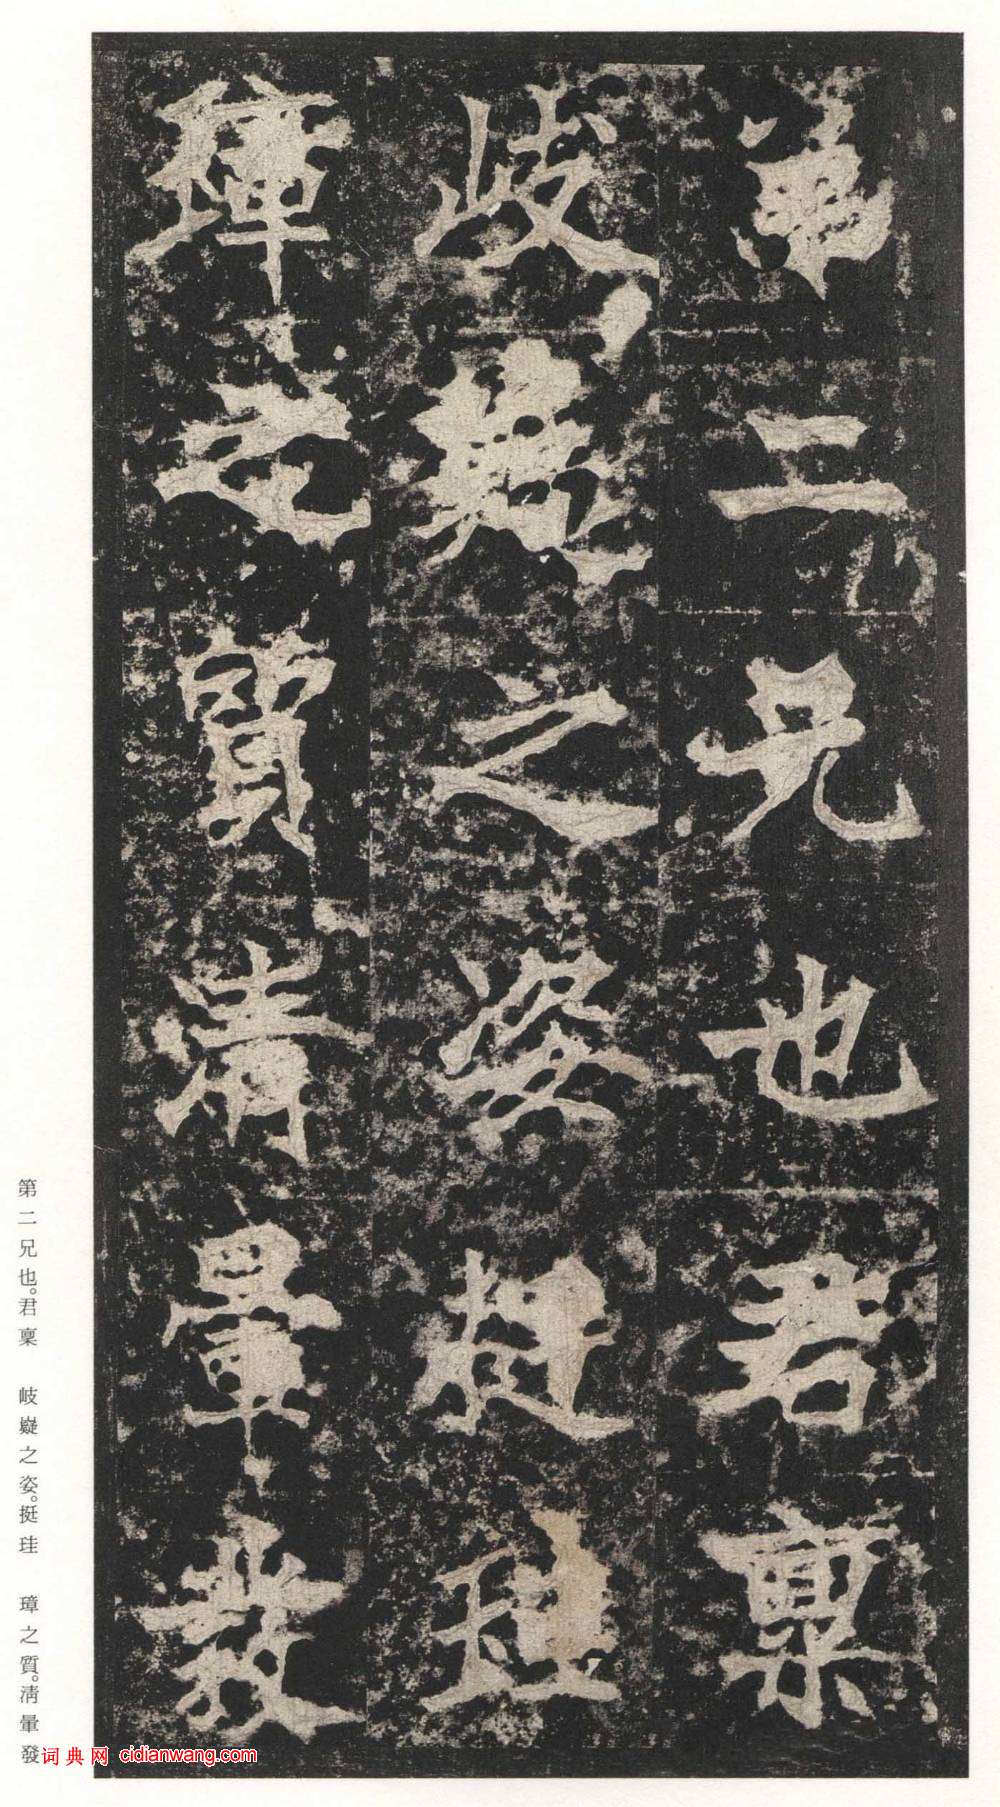 第二兄也君稟
岐嶷之姿挺珪
璋之質清暈發
第二兄也。君稟　岐嶷之姿。挺珪　璋之質。清暈發
词典网 cidianwang.com